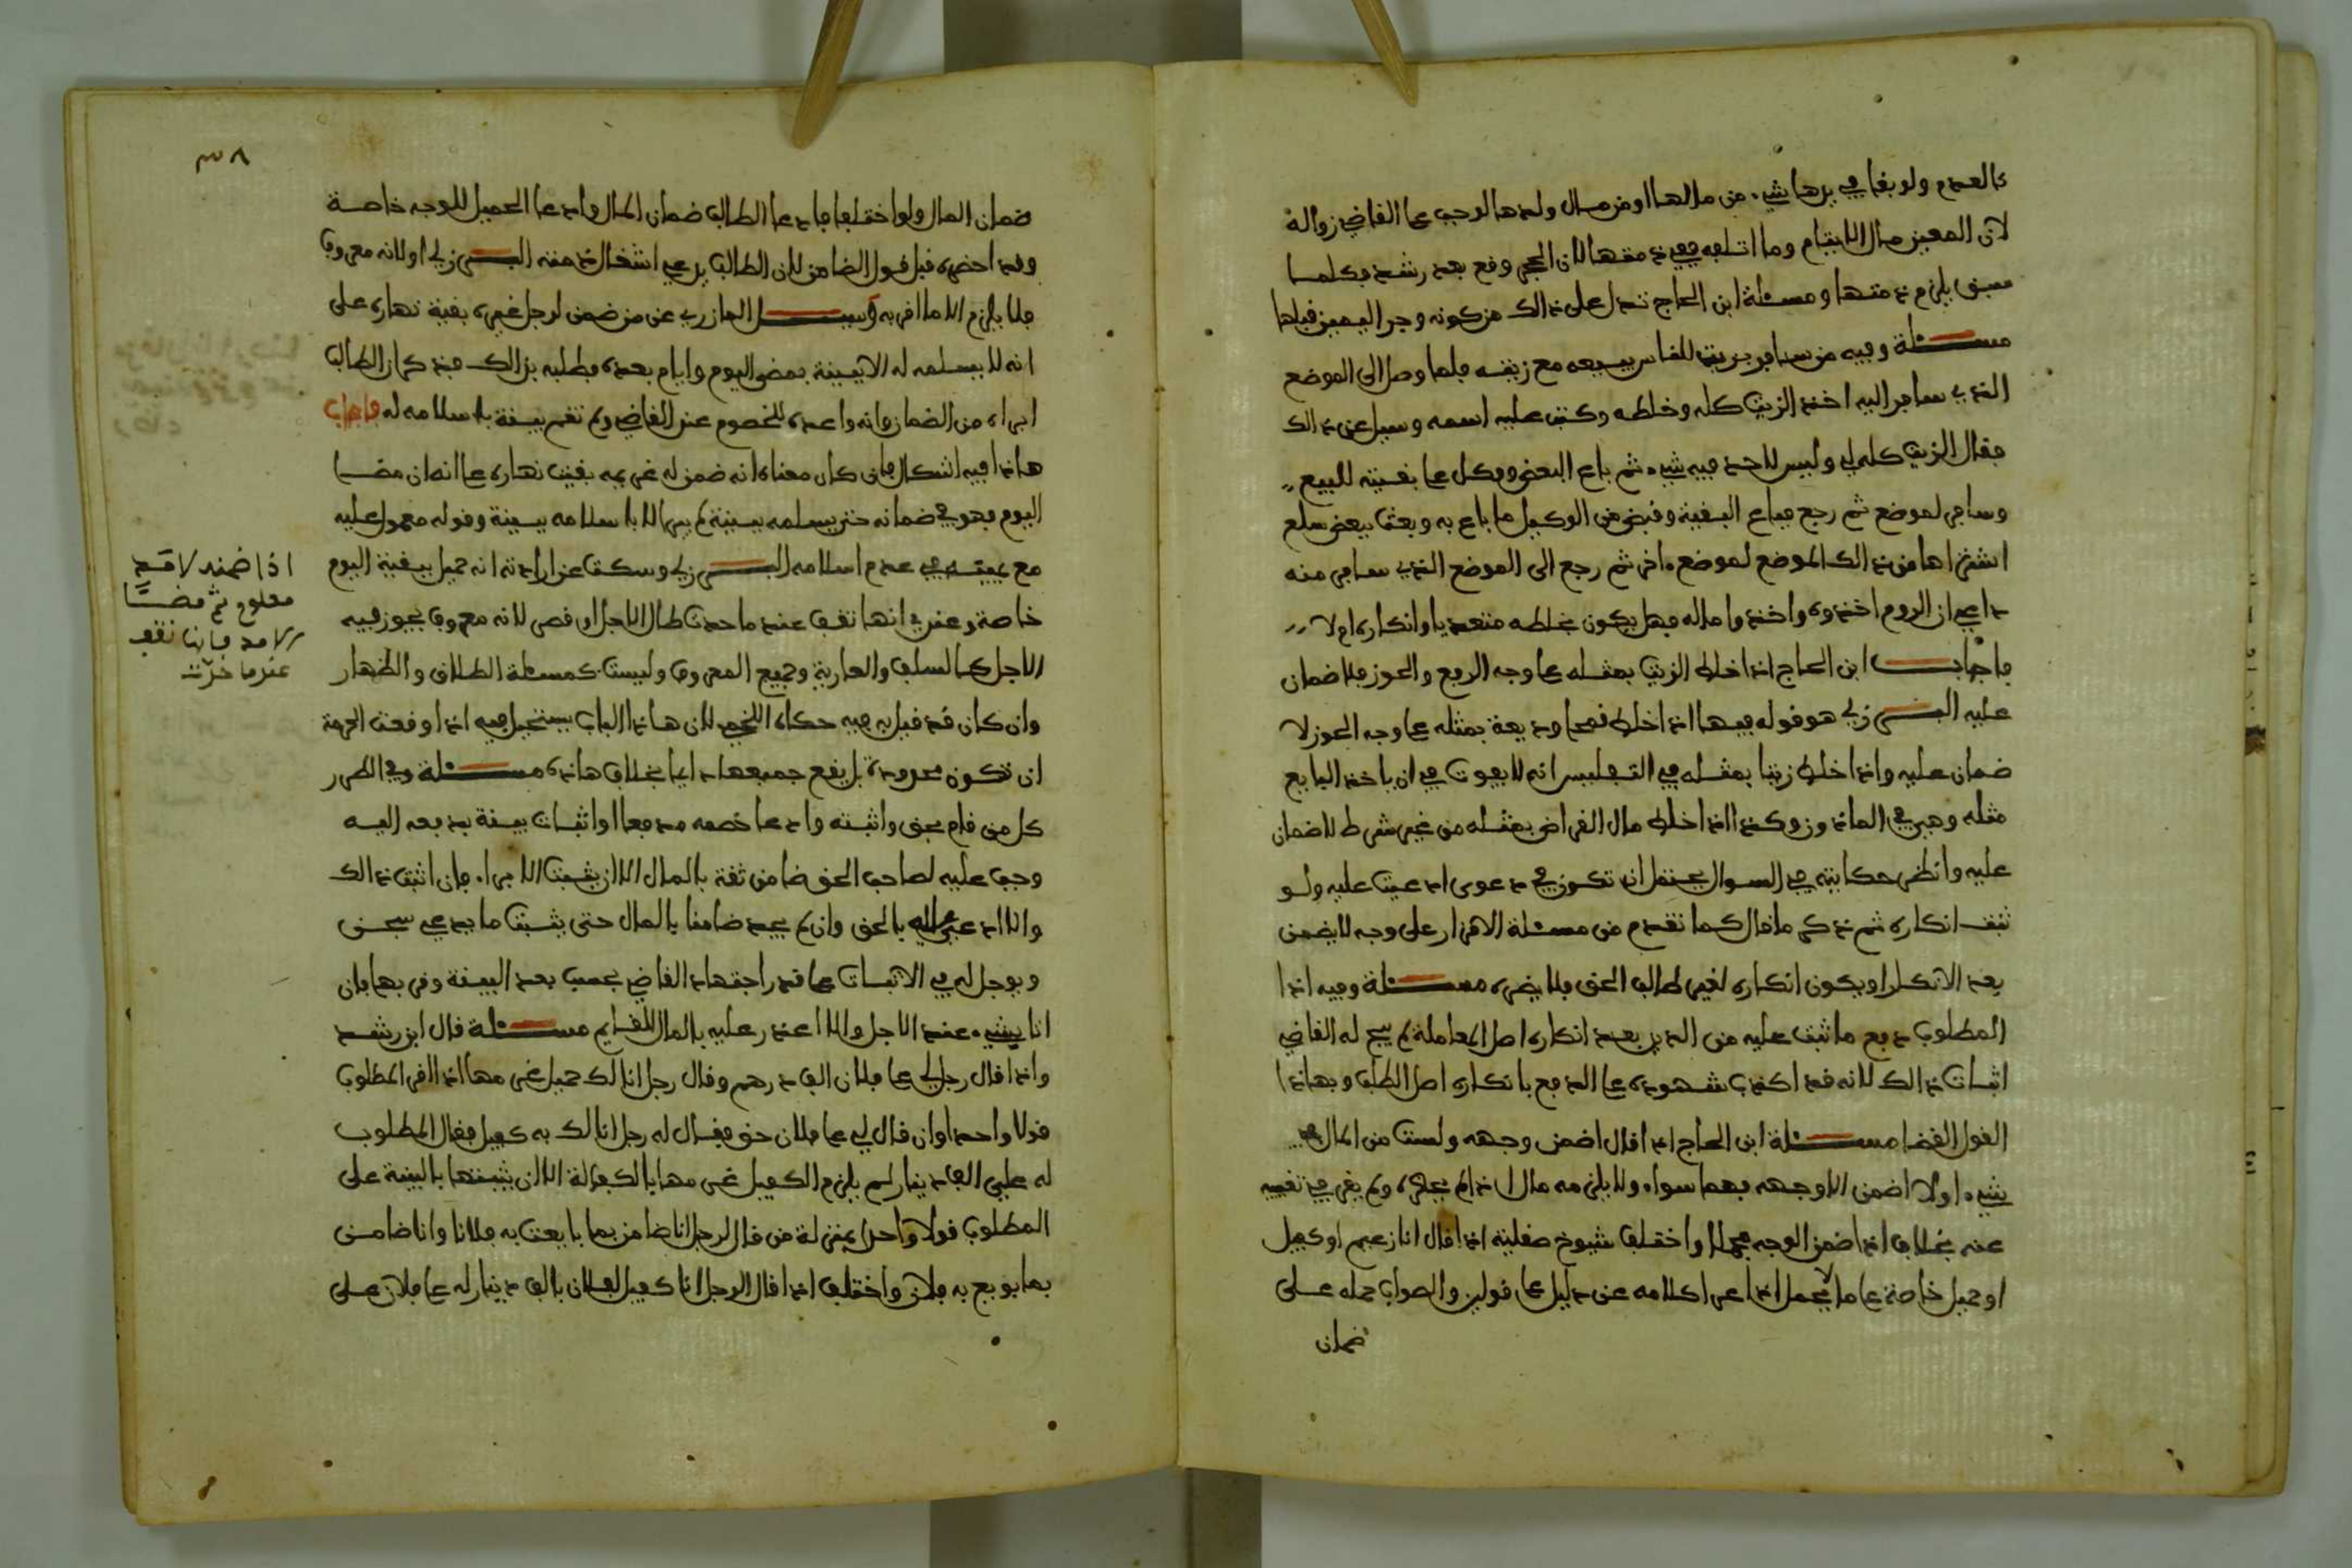 كالعدم ولو بقا في يدها شيء من مالها او من مال ولدها لوجب على القاضي زواله
لان المعين مال الايتام وما اتلفه ففي ذمتها لان الحجر وقع بعد رشد فكلما
سبق يلزم ذمتها ومسئلة ابن الحاج تدل على ذالك من كونه وجر اليمين قبلها
مسئلة وفيه من سافر بزيت للناس يبيعه مع زيته فلما وصل الى الموضع
الذي سافر اليه اخذ الزيت كله وخلطه وكتب عليه اسمه وسيل عن ذالك
فقال الزيت كله لي وليس لاحد فيه شيء ثم باع البعض ووكل على بقيته للبيع
وسافر لموضع ثم رجع فباع البقية وقبض من الوكيل ما باع به وبعث ببعض سلع
اشتراها من ذالك الموضع لموضع ءاخر ثم رجع الى الموضع الذي سافر منه
فادعي ان الروم اخذوه واخذوا ماله فهل يكون بخلطه متعديا وانكاره ام لا
فاجاب ابن الحاج اذا خلط الزيت بمثله على وجه الرفع والحوز فلا ضمان
عليه البرزلي هو قوله فيها اذا خلط قمحا وديعة بمثله على وجه الحوز لا
ضمان عليه واذا خلط زيتا بمثله في التفليس انه لا يفوت في ان ياخذ البايع
مثله وهي في الماذون وكذا اذا خلط مال القراض بمثله من غير شرط لا ضمان
عليه وانظر حكايته في السوال يحتمل ان تكون في دعوى ادعيت عليه ولو
ثبت انكاره ثم ذكر ما قال كما تقدم من مسئلة الاقرار على وجه لا يضمن
بعد الانكار او يكون انكاره لغير طالب الحق فلا يضره مسئلة وفيه اذا
المطلوب دفع ما ثبت عليه من الدين بعد انكاره اصل المعاملة لم يبح له القاضي
اثبات ذالك لانه قد اكذب شهوده على الدفع بانكاره اصل الطلب وبهاذا
القول القضا مسئلة ابن الحاج اذا قال اضمن وجهه ولست من المال في
شيء او لا اضمن الا وجهه فهما سواء ولا يلزمه مال اذا لم يحضره ولم يغر في تغيبه
عنه بخلاف اذا ضمن الوجه مجملا واختلف شيوخ صقلية اذا قال انا زعيم او كفيل
او حميل خاصة على ما يحمل اذا عرى كلامه عن دليل على قولين والصواب حمله على
ضمان
٣٨
ضمان المال ولو اختلفا فادعا الطالب ضمان المال وادعا الحميل للوجه خاصة
وقد احضره قبل قول الضامن لان الطالب يدعي اشغال ذمته البرزلي او لانه معروف
فلا يلزم الا ما اقر به وسئل المازري عن من ضمن لرجل غريمه بقية نهاره على
انه لا يسلمه له الا ببينة بمضى اليوم وايام بعده فطلبه بذالك فذكر ان الطالب
ابراه من الضمان وانه واعده للخصوم عند القاضي ولم تقم بينة باسلامه له فاجاب
هاذا فيه اشكال فان كان معناه انه ضمن له غريمه بقيت نهاره على انه ان مضا
اليوم فهو في ضمانه حتى يسلمه ببينة لم يبرا الا باسلامه ببينة وقوله معمول عليه
مع يمينه في عدم اسلامه البرزلي وسكت عن ارادته انه حميل ببقية اليوم
خاصة وعندي انها تقف عند ما حدت طال الاجل او قصر لانه معروف يجوز فيه
الاجل كالسلف والعارية وجميع المعروف وليست كمسئلة الطلاق والظهار
وان كان قد قيل به فيه حكاه اللخمي لان هاذا الباب يستحيل فيه اذا وقعت الحرمة
ان تكون محدودة بل يقع جميعها دايما بخلاف هاذه مسئلة وفي الطرر
كل من قام بحق واثبته وادعا خصمه مدفعا او اثبات بينة بدفعه اليه
وجب عليه لصاحب الحق ضامن ثقة بالمال الا ان يثبت البرا فان اثبت ذالك
والا ادعي عليه بالحق وان لم يجد ضامنا بالمال حتى يثبت ما يدعي سجن
ويوجل له في الاثبات على قدر اجتهاد القاضي بحسب بعد البينة وقربها فان
اتا بشيء عند الاجل والا اعذر عليه بالمال للقايم مسئلة قال ابن رشد
واذا قال رجل لي على فلان الف درهم وقال رجل انا لك حميل غرمها اذا اقر المطلوب
قولا واحدا وان قال لي على فلان حق فقال له رجل انا لك به كفيل فقال المطلوب
له علي الف دينار لم يلزم الكفيل غرمها بالكفالة الا ان يثبتها بالبينة على
المطلوب قولا واحدا بمنزلة من قال لرجل انا ضامن بما بايعت به فلانا وانا ضامن
بما بويع به فلان واختلف اذا قال الرجل انا كفيل لفلان بالف دينار له على فلان على
اذا ضمنه لامد
معلوم ثم مضا
الامد فانها تقف
عند ما حدّت